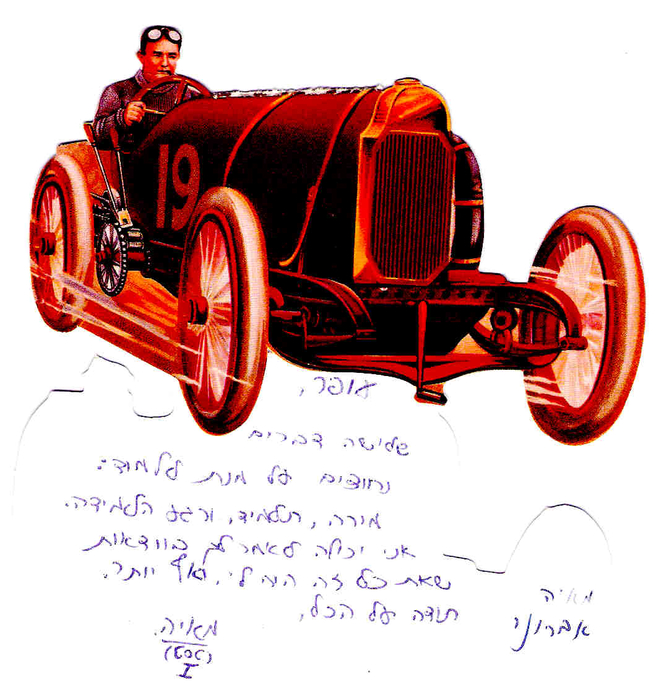 19
עופר,
שלישה דברים
נחוצים על מנת ללמוד:
מורה, תלמיד, ורגע הלמידה.
אני יכולה לאמר לך בוודאות
שאת כל זה היה לי, ואף יותר.
תודה על הכל,
מאיה.
I
מאיה
אברוני